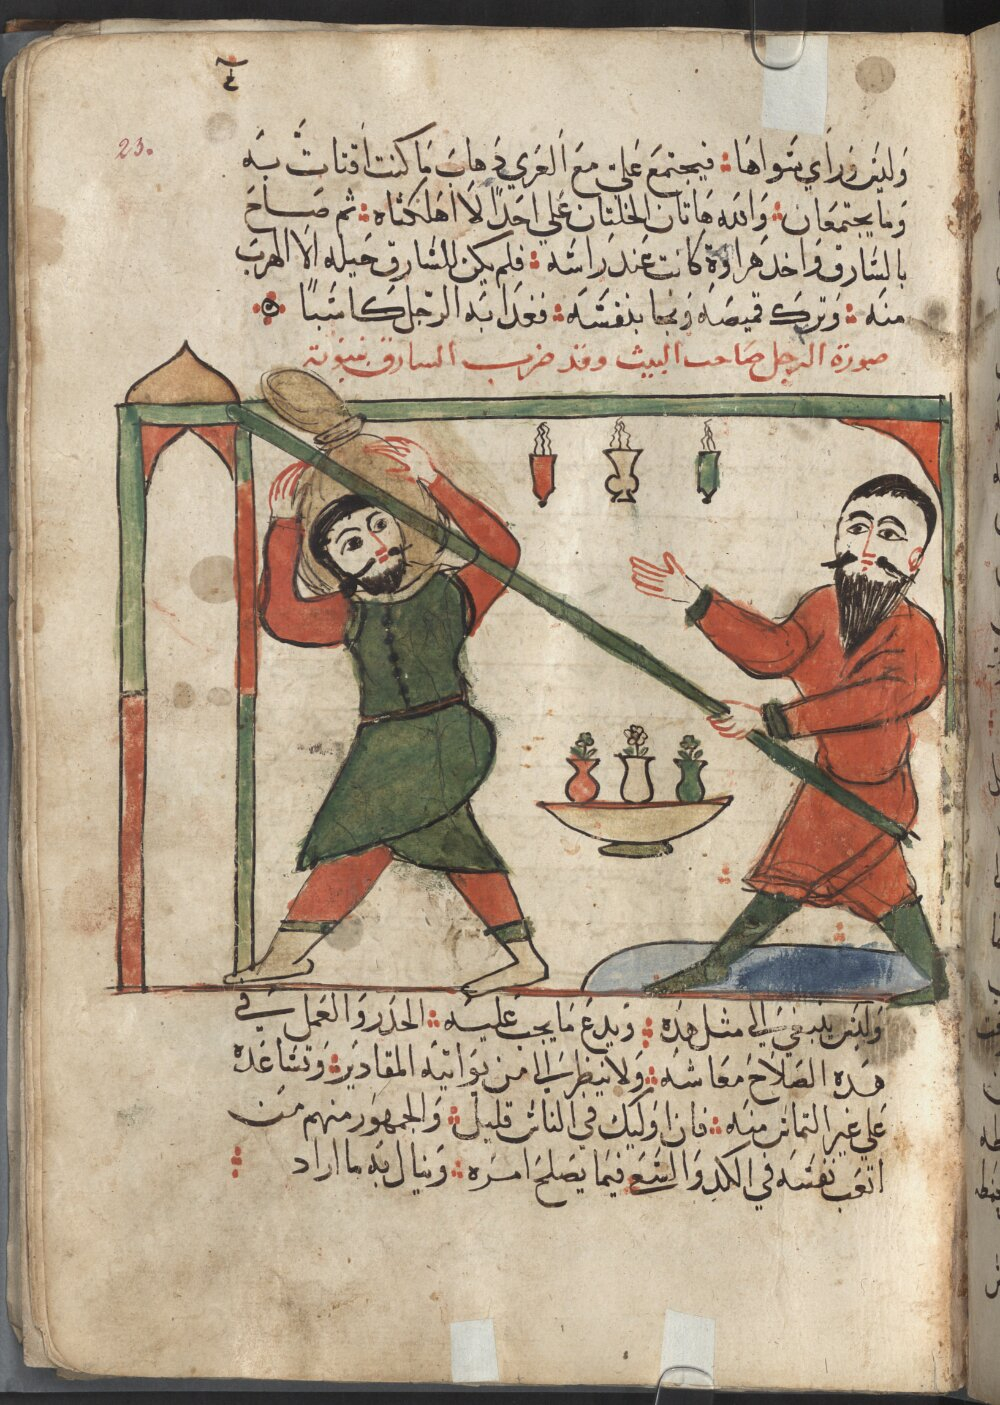 23.
وَليَس وَرَاي سَواهَا ∴ فيجتمعَ عَليّ معَ العَري ذهابَ مَا كنت اقتات به
وَما يجتمعَان ∴ وَالله هَاتان الخلتان عَلي احَدٍ الا اهلكتاه ∴ ثم صَاحَ
بالسَارق وَاخد هَراوة كانت عَند رَاسَه ∴ فلم يكن للسَارق حَيله الا الهرب
منه ∴ وَترك قميصَه وَنجا بنفسَه ∴ فغدَا به الرّجل كاسَبًا
صورة الرجل صاحب البيت وقد ضرب السارق
وَليَس ينبغي الي مثل هذه ∴ وَيدعَ مَا يجب عَليه ∴ الحذر وَالعَمل في
هَذه الصَلاحَ معَاشه ∴ وَلا ينظر الي من تؤاتيه المقاديَر ∴ وَتسَاعَده
عَلي غير التماس منه ∴ فان اوليك في الناس قليل ∴ وَالجمهَور منهم من
اتعَب نفسَه في الكد وَالسَعي فيما يصَلحَ امرَه ∴ وَينال به ما اراد